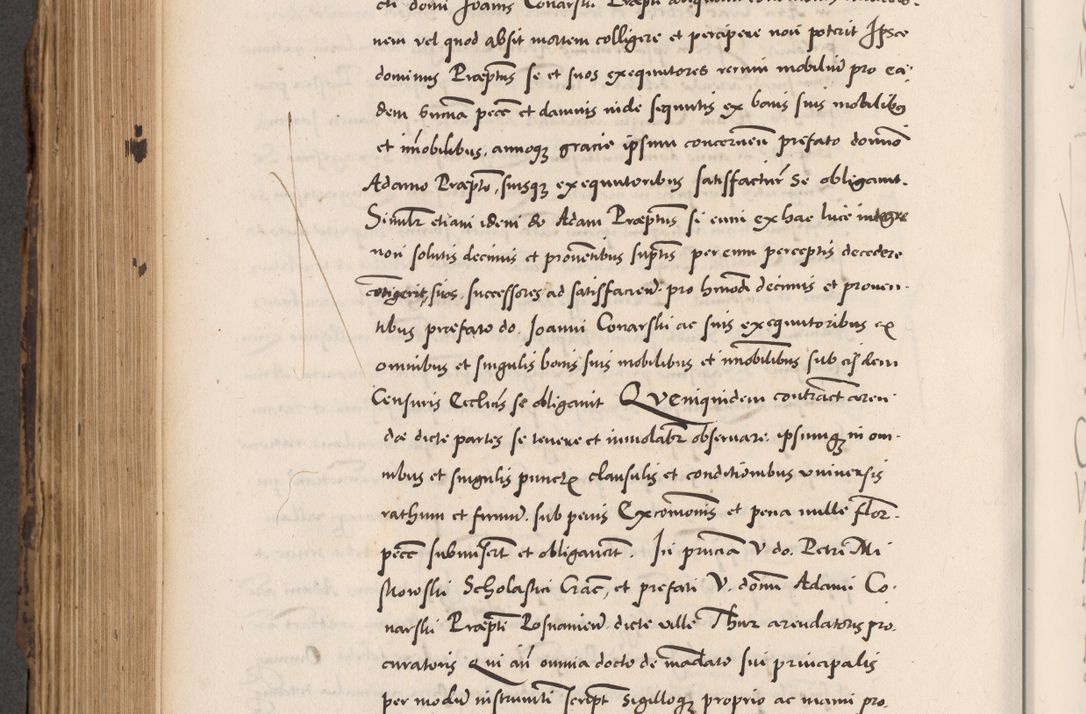 cti domi Joanis Conarski Præpti
nem vel quod absit mortem colligere et percipere non poterit Ipse
dominus Præptus se et suos exequutores rerum mobiliũ pro ea
dem sum̃a pecc̃ et damnis inde sequutis ex bonis suis mobilibꝫ
et im̃obilibus, annoqꝫ gracie ipsum concernen̄ prefato domino
Adamo Præpto, suisqꝫ exequutoribus satisfactur̄ se obligavit.
Similr̄ etiam idem do Adam Præptus si eum ex hac luce integre
non solutis decimis et proventibus suptis per eum perceptis decedere
cõtigerit, suos successores ad satisfaciend. pro hmodi decimis et proven
tibus præfato do. Joanni Conarski ac suis exequutoribus ex
omnibus et singulis bonis suis mobilibus et im̃obilibus sub eisdem
Censuris Ecclicis se obligavit Quemquidem contract aren
dæ dicte partes se tenere et inviolabr̄ observare ipsumqꝫ in om
nibus et singulis punctꝭ clausulis et conditionibus universis
rathum et firmũ. sub penis Excom̃onis et pena mille flor.
pecc̃ submisert̄ et obligavert̄. In pn̄cia V do. Petri Mi
skowski Scholastici Crac̄, et prefati V. domi Adami Co
narski Præpti Posnanien̄ dicte ville Thur arendatoris pro
curatoris Qui an̄ omnia docto de mãdato sui principalis
per modũ instrumti script̄ sigilloqꝫ proprio ac manu pro